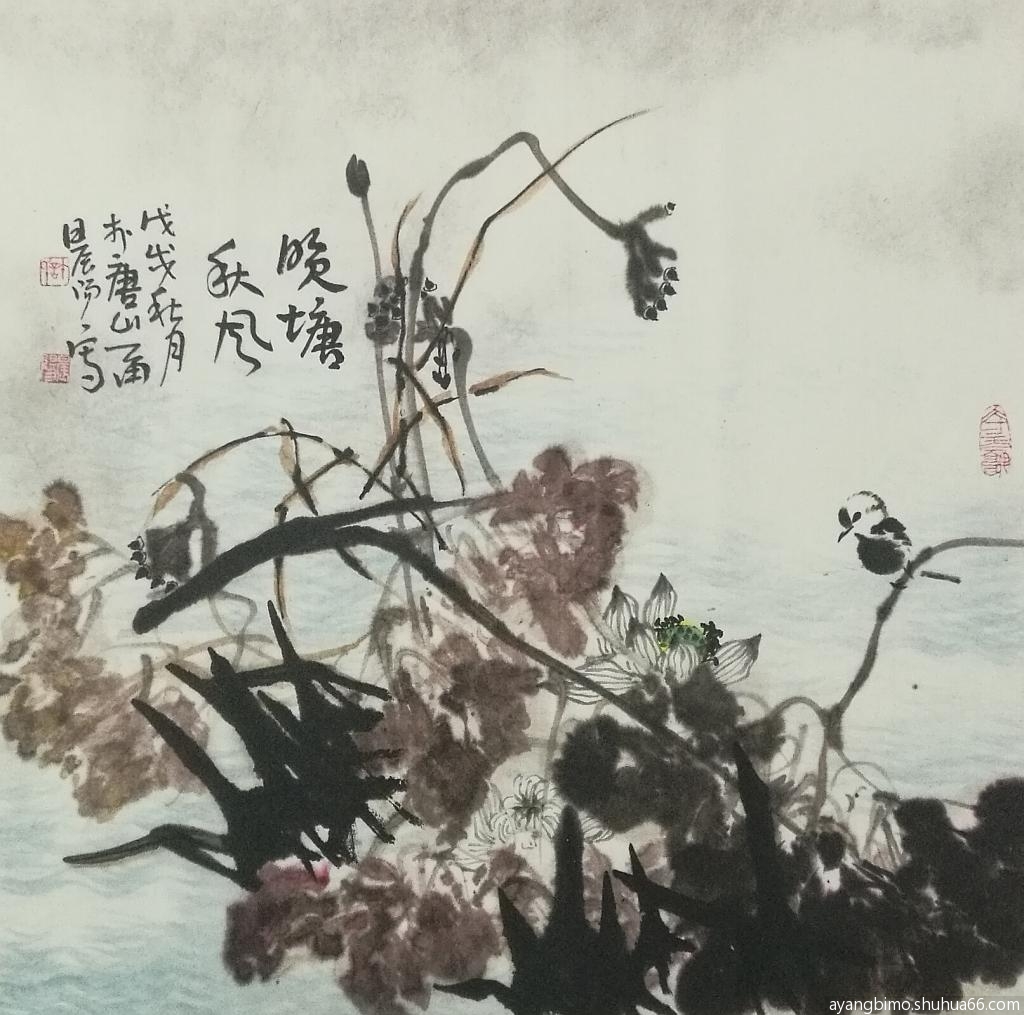 晚塘
秋风
戊戌秋月
於唐山
晨阳写
ayangbimo.shuhua66.com